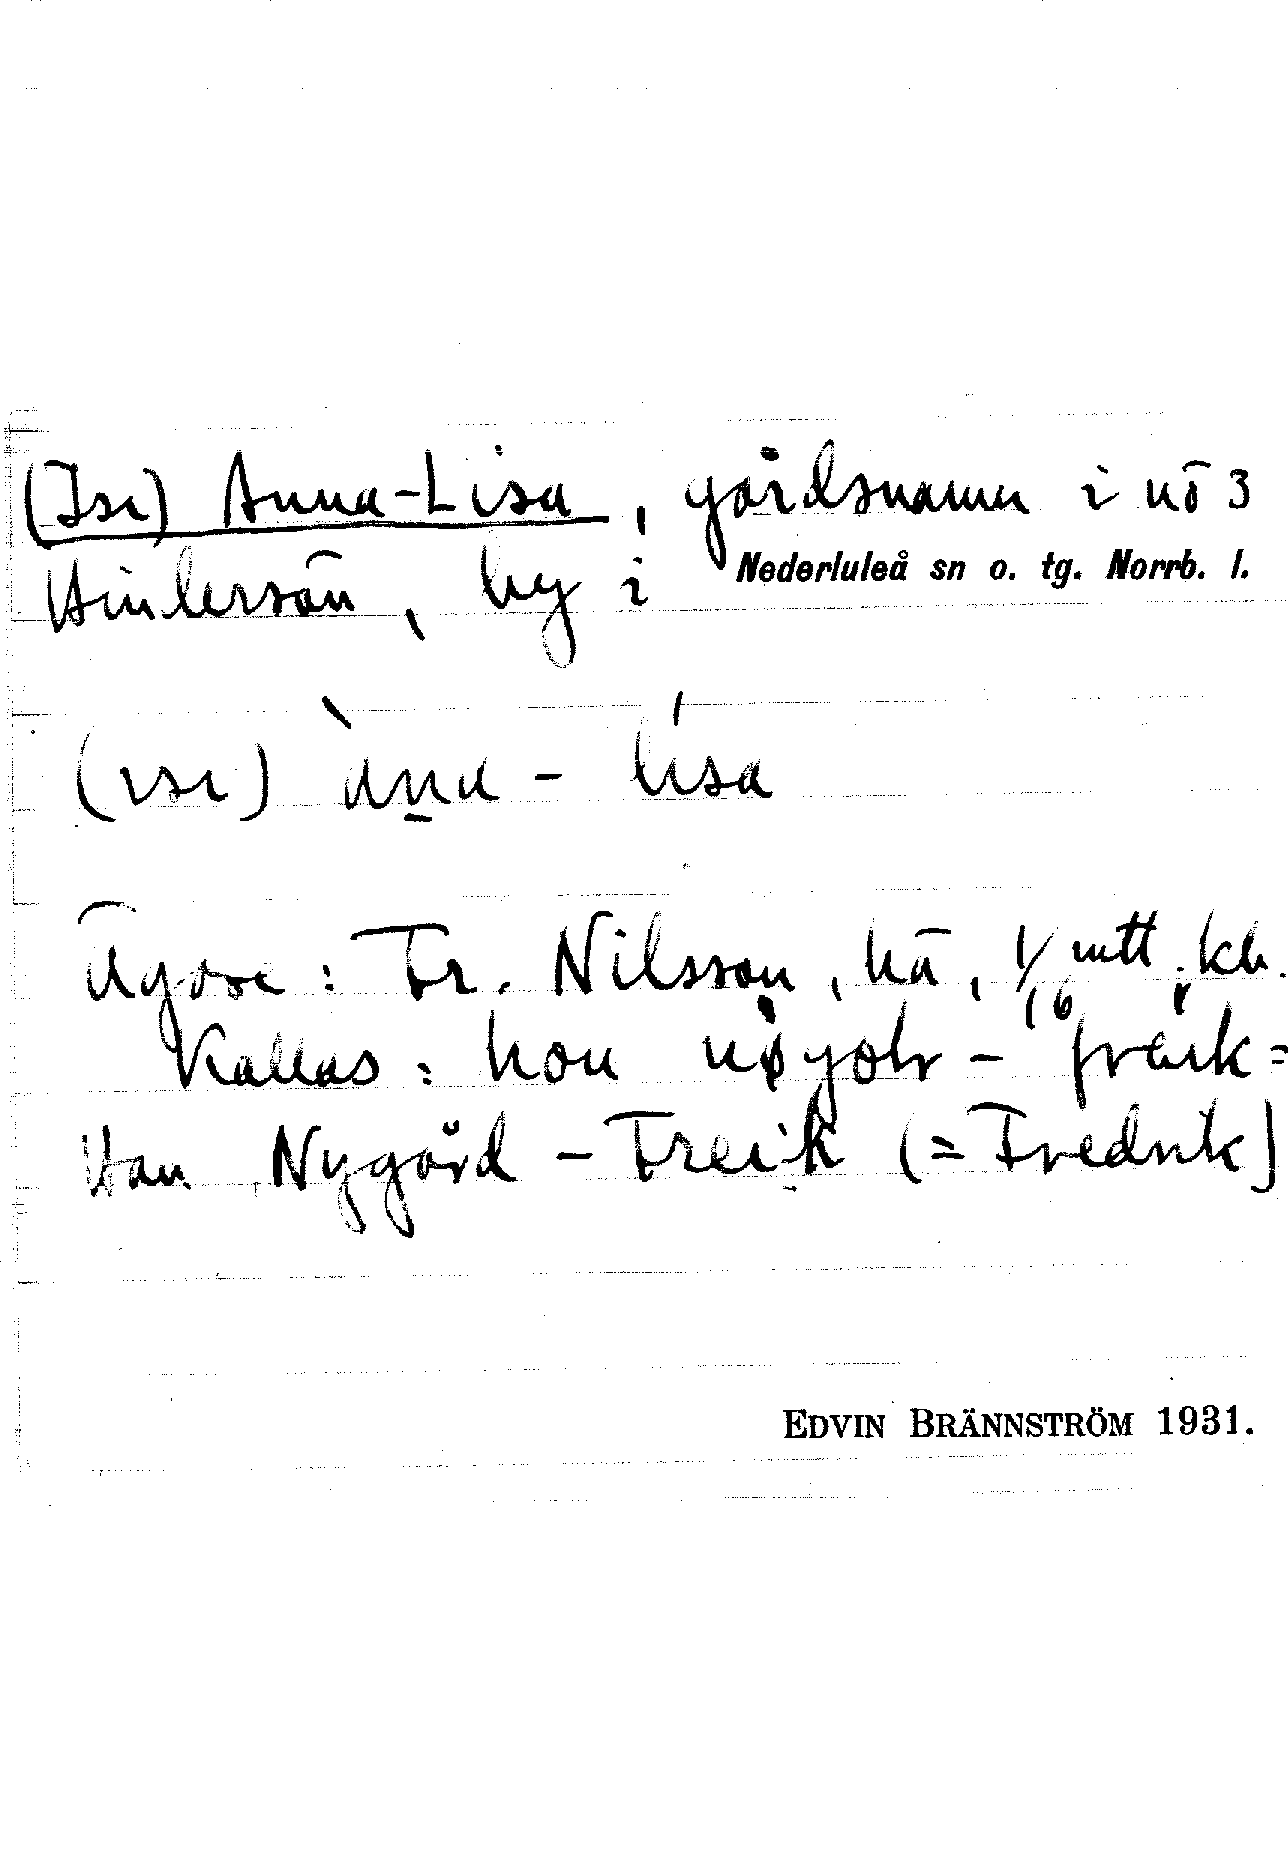 (Isr) Anna-Lisa, gårdsnamn i nö 3
Hindersön, by i Nederluleå sn o. tg. Norrb. l.
(ısr) àna - lísa
Ägare: Fr. Nilsson, hä, 1/16 mtt. kb.
Kallas: hon nygohr - freik =
Han Nygård - Freik (= Fredrik)
EDVIN BRÄNNSTRÖM 1931.